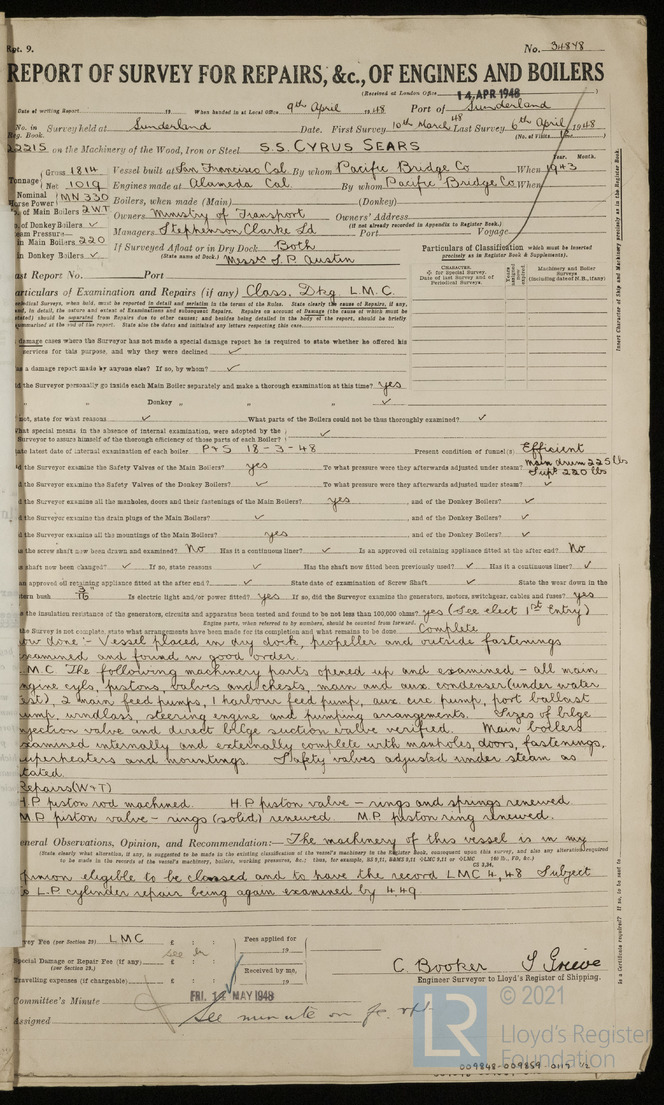 Rpt. 9.
No. 34848
REPORT OF SURVEY FOR REPAIRS, &c., OF ENGINES AND BOILERS
(Received at London Office 14 APR 1948 )
Date of writing Report 19 When handed in at Local Office 9th April 1948 Port of Sunderland
No. in Survey held at Sunderland Date. First Survey 10th March 48 Last Survey 6th April 1948
Reg. Book. (No. of Visits 12 )
22215 on the Machinery of the Wood, Iron or Steel S.S. CYRUS SEARS
Year. Month.
Tonnage Gross 1814 Vessel built at San Francisco Cal. By whom Pacific Bridge Co When 1943
Net 1019 Engines made at Alameda Cal By whom Pacific Bridge Co When
Nominal Horse Power MN 330 Boilers, when made (Main) (Donkey)
of Main Boilers 2WT Owners Ministry of Transport Owners' Address
of Donkey Boilers ✓ (if not already recorded in Appendix to Register Book.)
Managers Stephenson Clarke Ld Port Voyage
in Main Boilers 220 If Surveyed Afloat or in Dry Dock Both
in Donkey Boilers ✓ (State name of Dock.) Messrs S.P. Austin
Particulars of Classification which must be inserted precisely as in Register Book & Supplements).
ast Report No. Port
CHARACTER. for Special Survey. Date of last Survey and of Periodical Surveys.
Machinery and Boiler Surveys (including dates of N.B., if any)
Insert Character of Ship and Machinery precisely as in the Register Book.
articulars of Examination and Repairs (if any) Class. Dkg L.M.C.
damage cases where the Surveyor has not made a special damage report he is required to state whether he offered his
services for this purpose, and why they were declined ✓
s a damage report made by anyone else? If so, by whom? ✓
d the Surveyor personally go inside each Main Boiler separately and make a thorough examination at this time? yes
" " Donkey " " " ✓
not, state for what reasons ✓ What parts of the Boilers could not be thus thoroughly examined? ✓
hat special means, in the absence of internal examination, were adopted by the
Surveyor to assure himself of the thorough efficiency of those parts of each Boiler? ✓
ate latest date of internal examination of each boiler P+S 18-3-48 Present condition of funnel(s) Efficient
d the Surveyor examine the Safety Valves of the Main Boilers? yes To what pressure were they afterwards adjusted under steam? main drum 225 lbs Supt 220 lbs
d the Surveyor examine the Safety Valves of the Donkey Boilers? ✓ To what pressure were they afterwards adjusted under steam? ✓
d the Surveyor examine all the manholes, doors and their fastenings of the Main Boilers? yes , and of the Donkey Boilers? ✓
d the Surveyor examine the drain plugs of the Main Boilers? ✓ , and of the Donkey Boilers? ✓
d the Surveyor examine all the mountings of the Main Boilers? yes , and of the Donkey Boilers? ✓
s the screw shaft now been drawn and examined? No Has it a continuous liner? ✓ Is an approved oil retaining appliance fitted at the after end? No
s shaft now been changed? ✓ If so, state reasons ✓ Has the shaft now fitted been previously used? ✓ Has it a continuous liner? ✓
an approved oil retaining appliance fitted at the after end? ✓ State date of examination of Screw Shaft ✓ State the wear down in the
tern bush 3/16 Is electric light and/or power fitted? yes If so, did the Surveyor examine the generators, motors, switchgear, cables and fuses? yes
s the insulation resistance of the generators, circuits and apparatus been tested and found to be not less than 100,000 ohms? yes (See elect 1st Entry)
Engine parts, when referred to by numbers, should be counted from forward.
the Survey is not complete, state what arrangements have been made for its completion and what remains to be done Complete
ow done :- Vessel placed in dry dock, propeller and outside fastenings
xamined and found in good order.
MC The following machinery parts opened up and examined - all main
ngine cyls, pistons, valves and chests, main and aux condenser (under water
est), 2 main feed pumps, 1 harbour feed pump, aux circ pump, port ballast
ump, windlass, steering engine and pumping arrangements. Sizes of bilge
njection valve and direct bilge suction valve verified. Main boilers
xamined internally and externally complete with manholes, doors, fastenings,
uperheaters and mountings. Safety valves adjusted under steam as
tated.
Repairs (W+T)
H.P. piston rod machined. H.P. piston valve - rings and springs renewed.
M.P. piston valve - rings (solid) renewed. M.P. piston ring renewed.
eneral Observations, Opinion, and Recommendation:- The machinery of this vessel is in my
(State clearly what alteration, if any, is suggested to be made in the existing classification of the vessel's machinery in the Register Book, consequent upon this survey, and also any alterations required
to be made in the records of the vessel's machinery, boilers, working pressures, &c.; thus, for example,
pinion eligible to be classed and to have the record LMC 4,48 Subject
o L.P. cylinder repair being again examined by 4.49
rvey Fee (per Section 29) LMC £ : : Fees applied for
Special Damage or Repair Fee (if any) £ : : 19
(per Section 29.) Received by me,
ravelling expenses (if chargeable) £ : : 19
C. Booker S Grieve
Engineer Surveyor to Lloyd's Register of Shipping.
Committee's Minute FRI. 14 MAY 1948
Assigned See minute on
Is a Certificate required? If so, to be sent to
LR
© 2021
Lloyd's Register
Foundation
009848-009859-0117 1/2